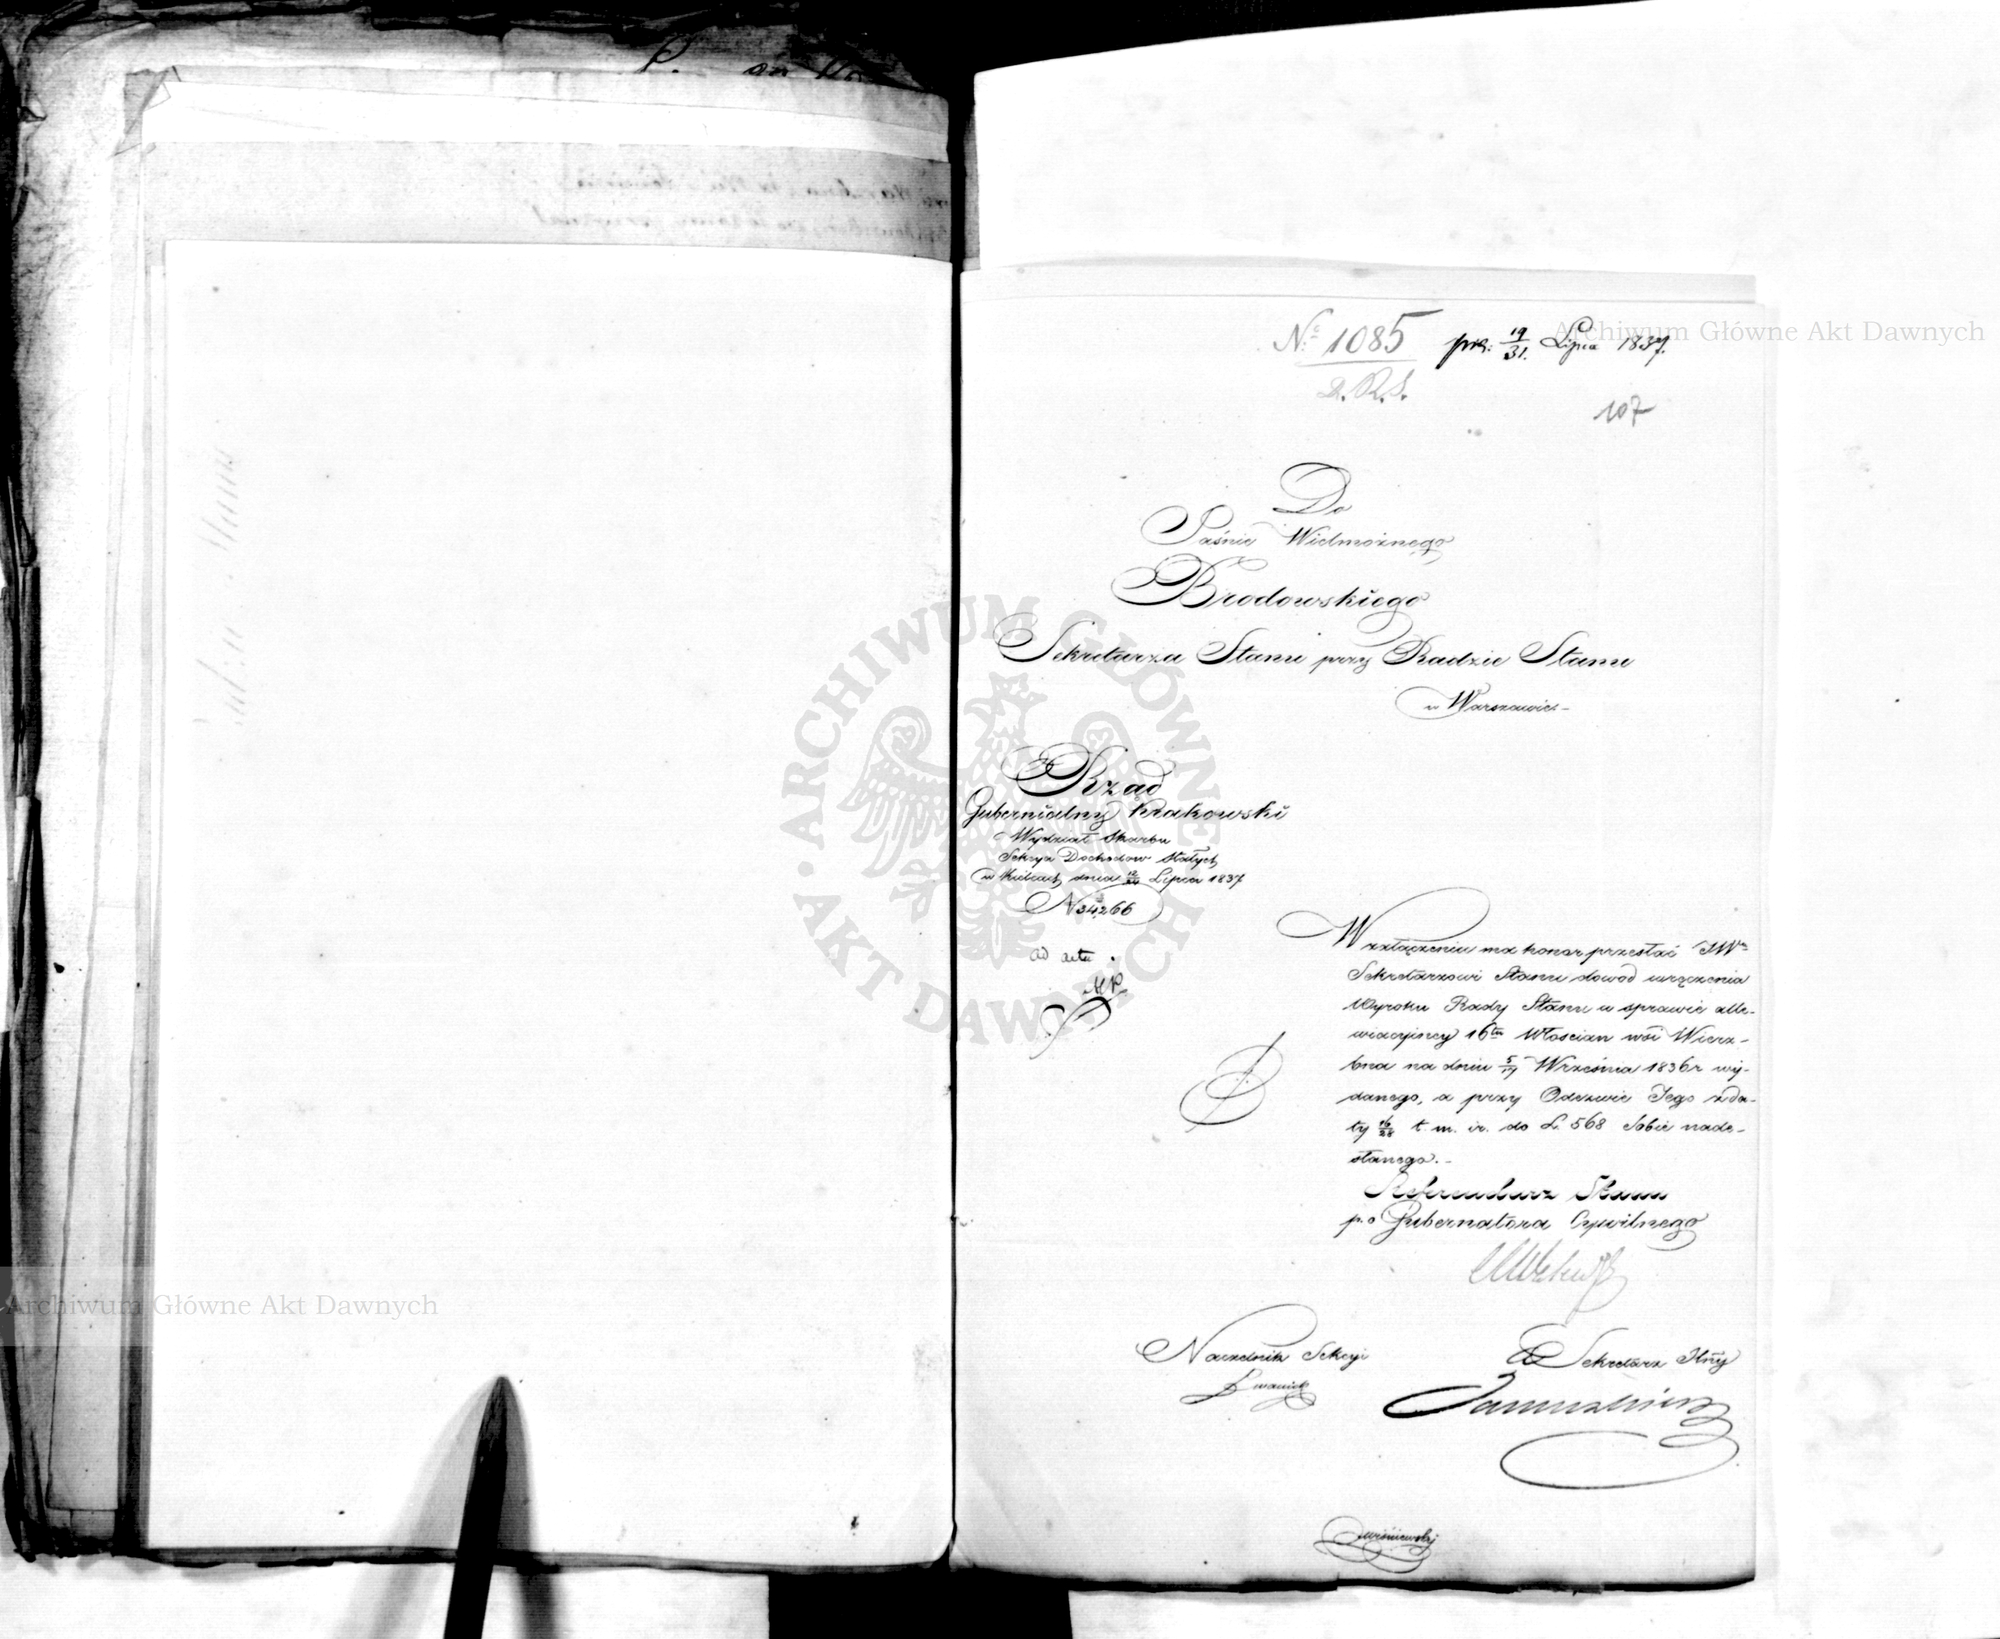 Nr 1085 prz. 19/31. Lipca 1837.
D. R. S.
107
Do
Jaśnie Wielmożnego
Brodowskiego
Sekretarza Stanu przy Radzie Stanu
w Warszawie
Rząd
Gubernialny Krakowski
Wydział Skarbu
Sekcya Dochodow Stałych
w Kielcach dnia 12/24 Lipca 1837
N 34266
ad acta.
W załączeniu ma honor przesłać JWu
Sekretarzowi Stanu dowód wręczenia
Wyroku Rady Stanu w sprawie alle-
wiacyjney 16tu Włościan wsi Wierz-
bna na dniu 5/17 Września 1836 r wy-
danego, a przy Odezwie Jego z da-
ty 16/28 t. m. i r. do L. 568 Sobie nade-
słanego. -
Referendarz Stanu
p. o Gubernatora Cywilnego
Naczelnik Sekcyi
Sekretarz Jlny
Januszkiewicz
Wiśniewski
ARCHIWUM GŁÓWNE AKT DAWNYCH
Archiwum Główne Akt Dawnych
Archiwum Główne Akt Dawnych